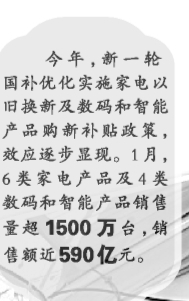 今年，新一轮
国补优化实施家电以
旧换新及数码和智能
产品购新补贴政策，
效应逐步显现。1月，
6类家电产品及4类
数码和智能产品销售
量超1500万台，销
售额近590亿元。